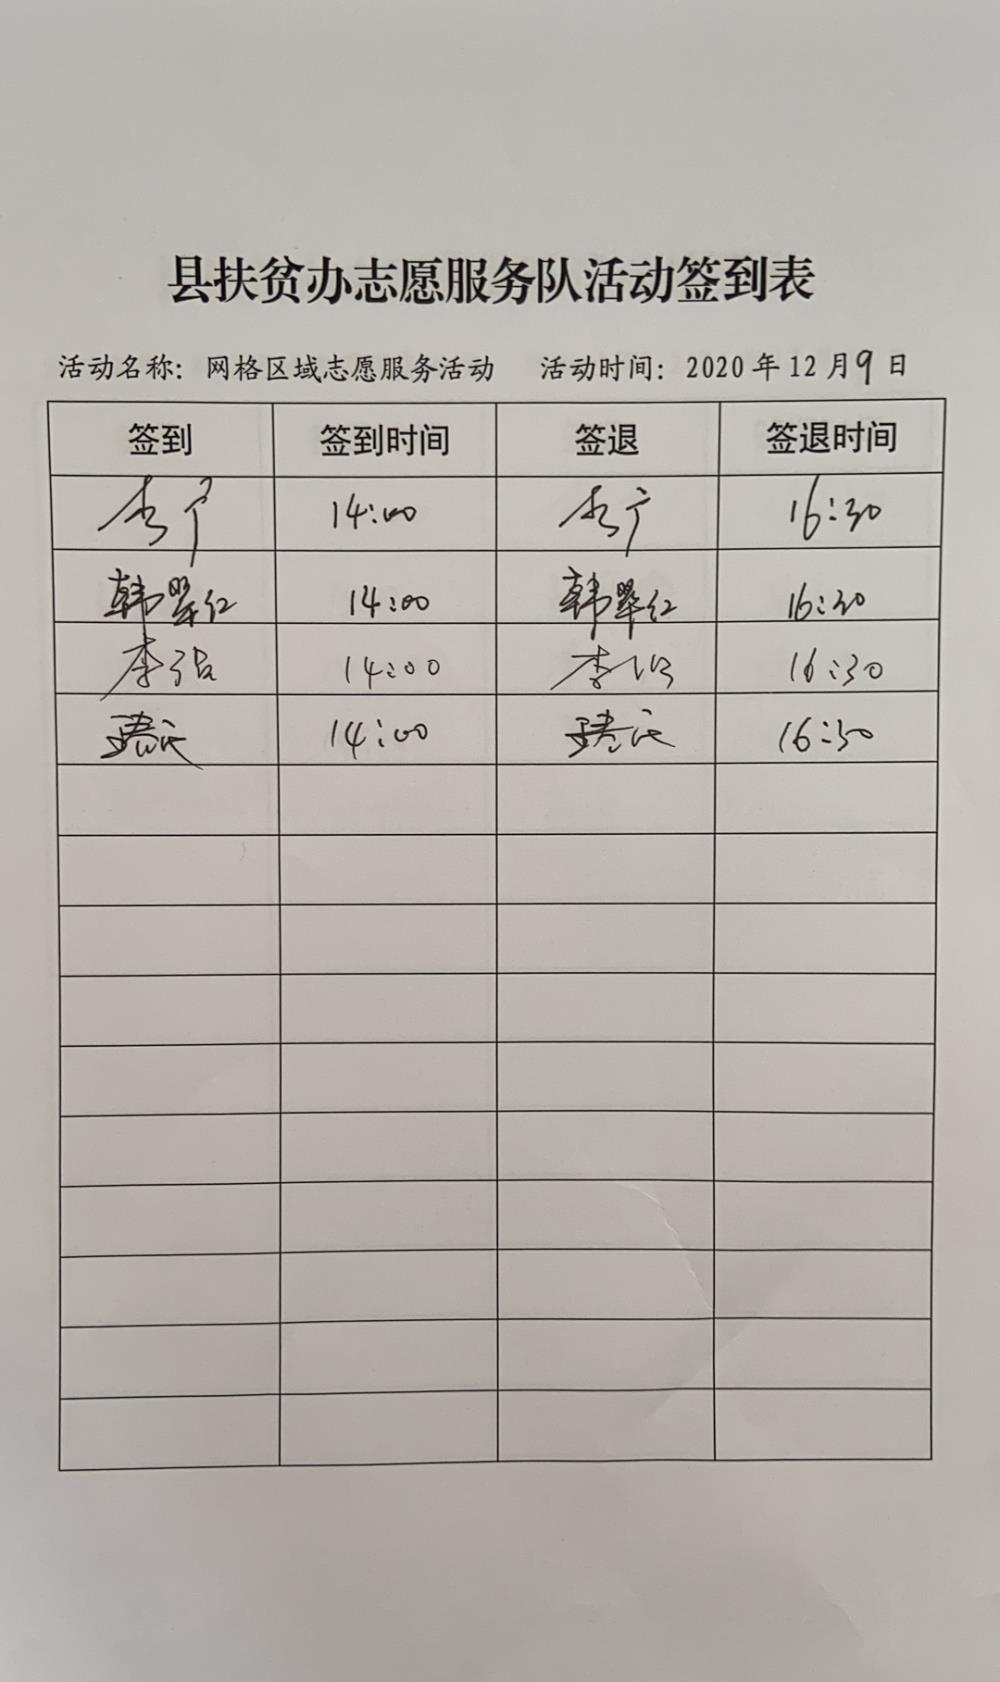 县扶贫办志愿服务队活动签到表
活动名称：网格区域志愿服务活动 活动时间：2020年12月9日
签到 签到时间 签退 签退时间
14:00 16:30
韩翠红 14:00 韩翠红 16:30
李 14:00 李 16:30
14:00 16:30